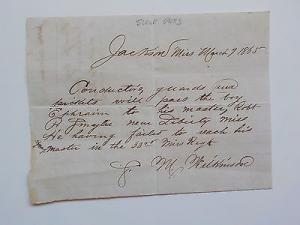 Jackson Miss March 9 1865
Conductors, guards and
pickets will pass the boy
Ephraim to his master Robt
near Liberty Miss
He having failed to reach his
master in the 33rd Miss Regt
J. M. Wilkinson